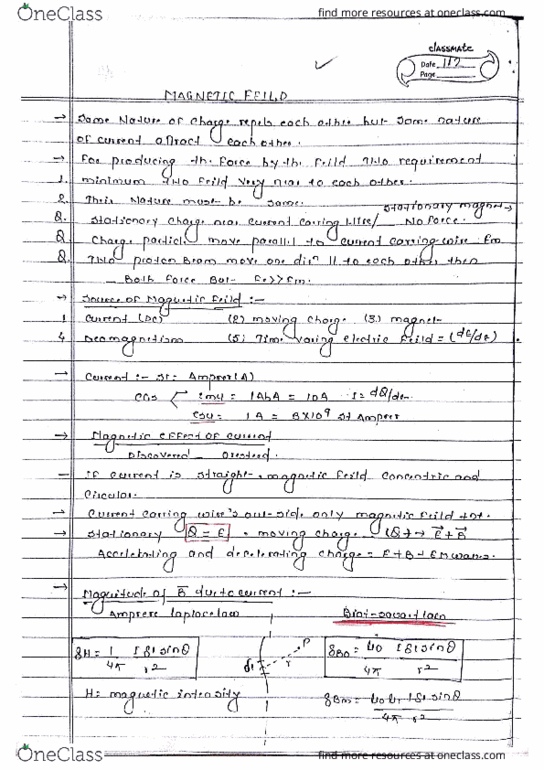 OneClass
find more resources at oneclass.com
classmate
Date 117
Page
MAGNETIC FEILD
→ Same Nature of Charge repels each other but same nature
of current attract each other.
→ For producing the force by the feild Two requirement
1. minimum two feild very near to each other.
2. Their Nature must be same.
Stationary magnet →
Q. Stationary Charge near current carring wire/ No force.
Q. Charge particle move parallel to current carring wire Fm
Q. Two proton Beam move one dirⁿ 11 to each other then
_ Both force But- Fe>>Fm.
→ Source of Magnetic Feild :-
1 Current (DC) (2) moving charge (3) magnet-
4 Deamagnetism (5) Time varing electric feild = (dE/dt)
→ Current :- SI: Ampree (A)
CGS emu = 1AbA = 10A I = dQ/dt
esu = 1 A = 3x10⁹ st Ampeer
→ Magnetic effect of current
Discovered _ Orested.
- if current is straight - magnetic feild concentric and
Circular
→ Current carring wire's out-side only magnetic feild
→ Stationary Q = E , moving charge (Q+) → E + B
Accelebating and decelerating charge = E + B + EM waves.
→ Magnitude of B due to current :-
Ampere laplace law Biot-savart law
δH = 1/4π Iδl sinθ/r² δl r P δB₀ = μ₀/4π Iδl sinθ/r²
H = magnetic intensity δBm = μ₀μr Iδl sinθ/4π r²
OneClass
find more resources at oneclass.com